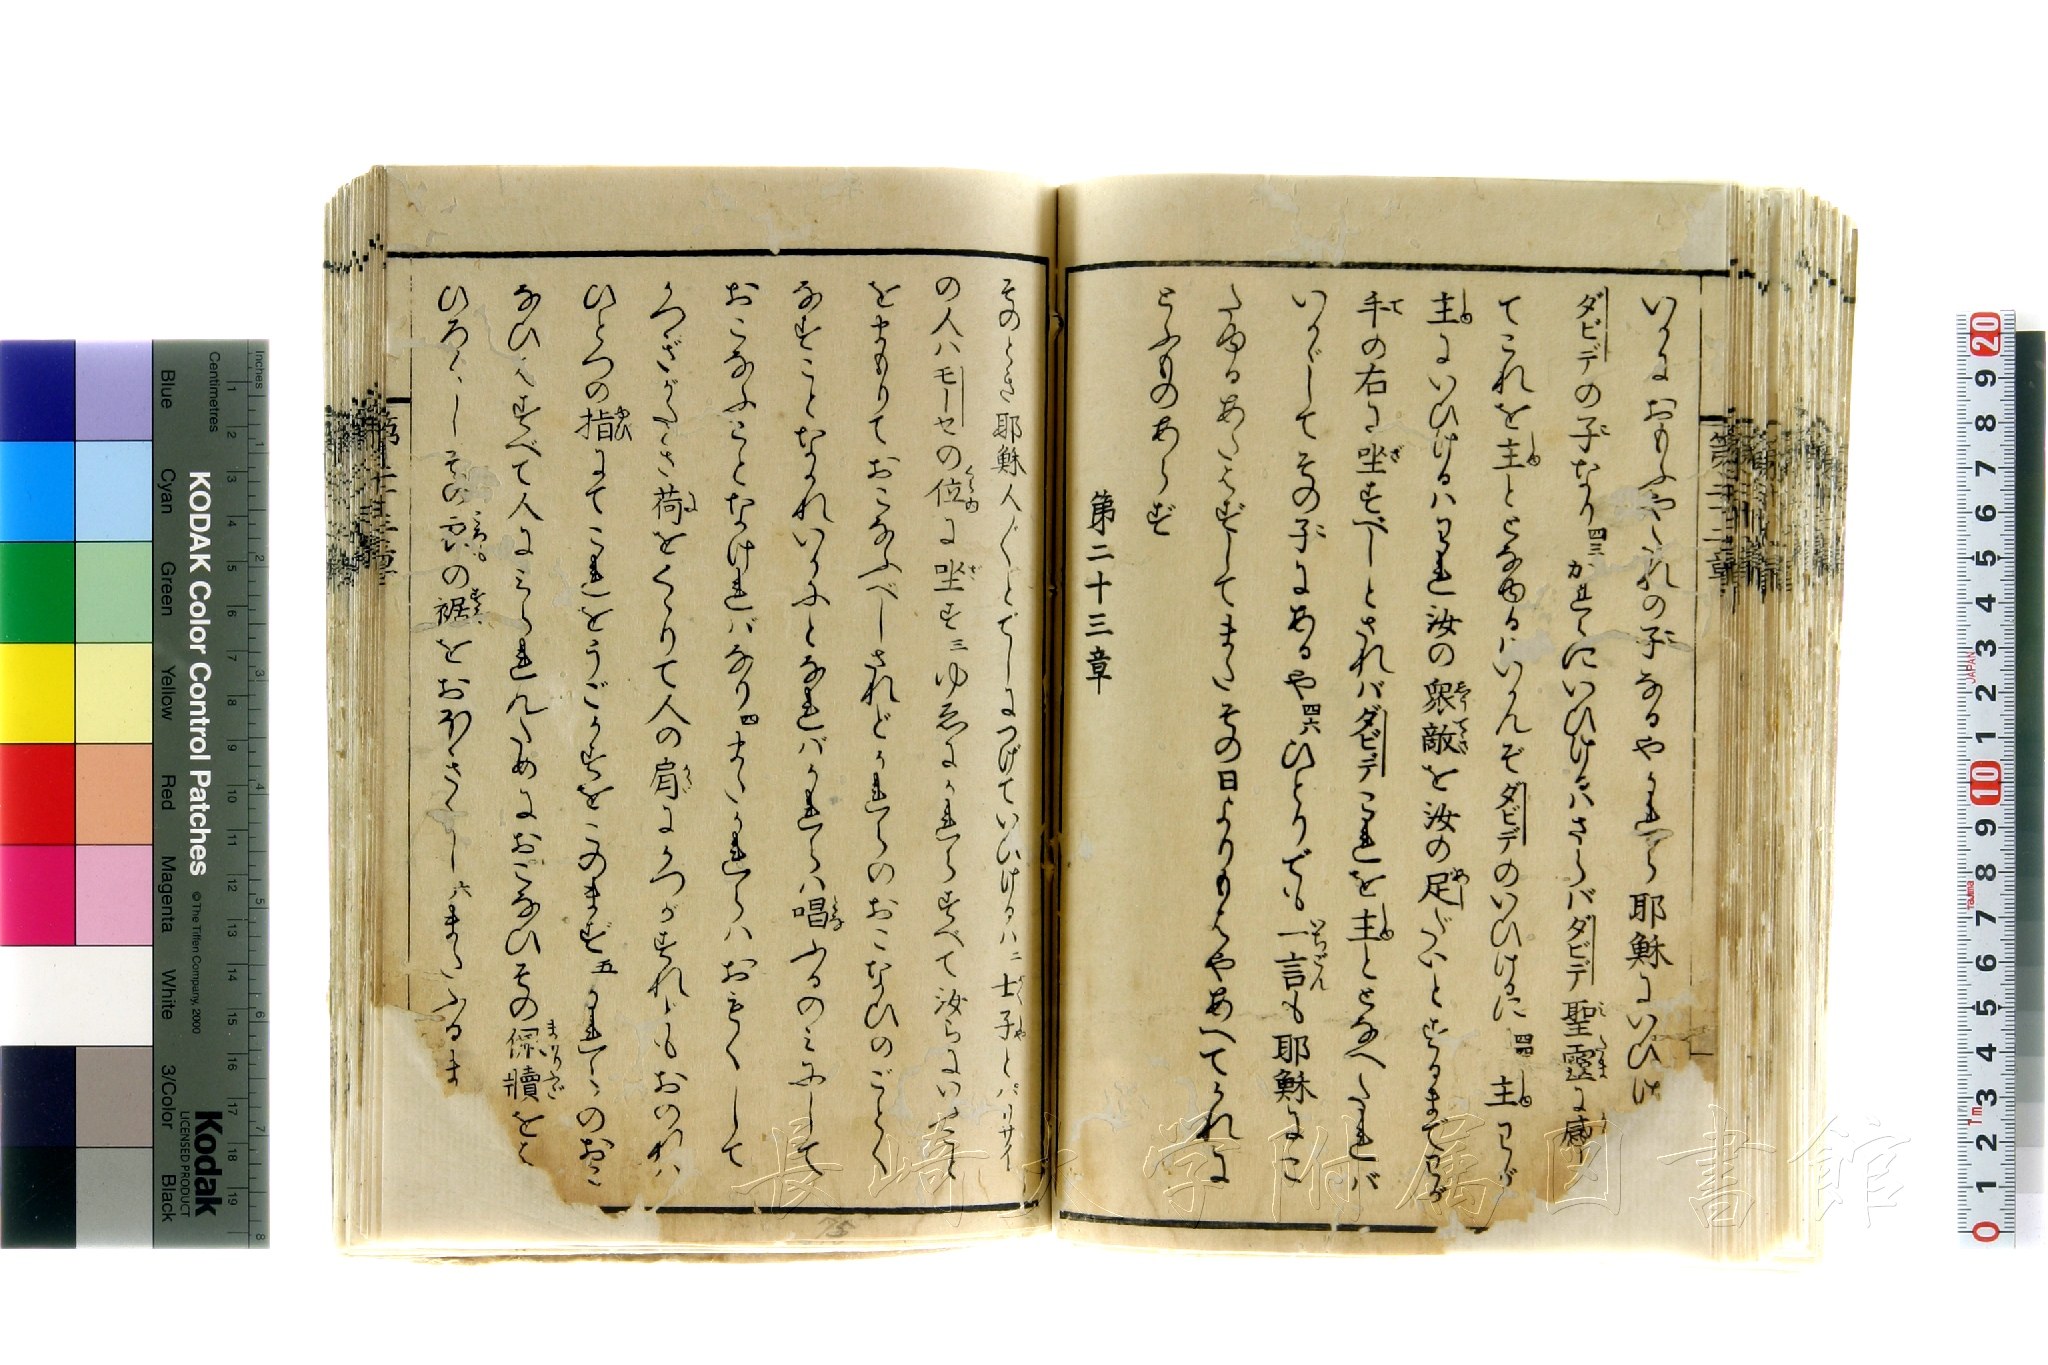 いかにおもふやこれの子なるやかれら耶穌にいひけ
ダビデの子なり四三かれらにいひけるハさらバダビデ聖靈に感
てこれを主ととなゆるハいかんぞダビデのいひけるに四四主わが
主にいひけるハわれ汝の衆敵を汝の足だいとするまでわが
手の右に坐すべしとされバダビデこれを主ととなへたれバ
いかゞしてその子にあるや四六ひとりでも一言も耶穌にこ
たゆるあたはずしてまたその日よりもはやあへてかれに
とふものあらず
第二十三章
そのとき耶穌人〴〵とでしにつげていひけるハ二士子とパリサイ
の人ハモーセの位に坐す三ゆゑにかれらすべて汝らにいふこと
をまもりておこなふべしされどかれらのおこなひのごとく
なすことなかれいかにとなれバかれらハ唱ふるのミにして
おこなふことなけれバなり四またかれらハおもくして
かつぎがたき荷をくゝりて人の肩にかつがすれどもおのれハ
ひとつの指にてこれをうごかすをこのまず五かれらのおこ
なひハすべて人にミられんためにおこなひその保牘をと
ひろくしその衣の裾をおほきくし六またふるま
第二十二章
KODAK Color Control Patches
© The Tiffen Company, 2000
Kodak
LICENSED PRODUCT
Inches
Centimetres
Blue
Cyan
Green
Yellow
Red
Magenta
White
3/Color
Black
長崎大学附属図書館
JAPAN
Tajima